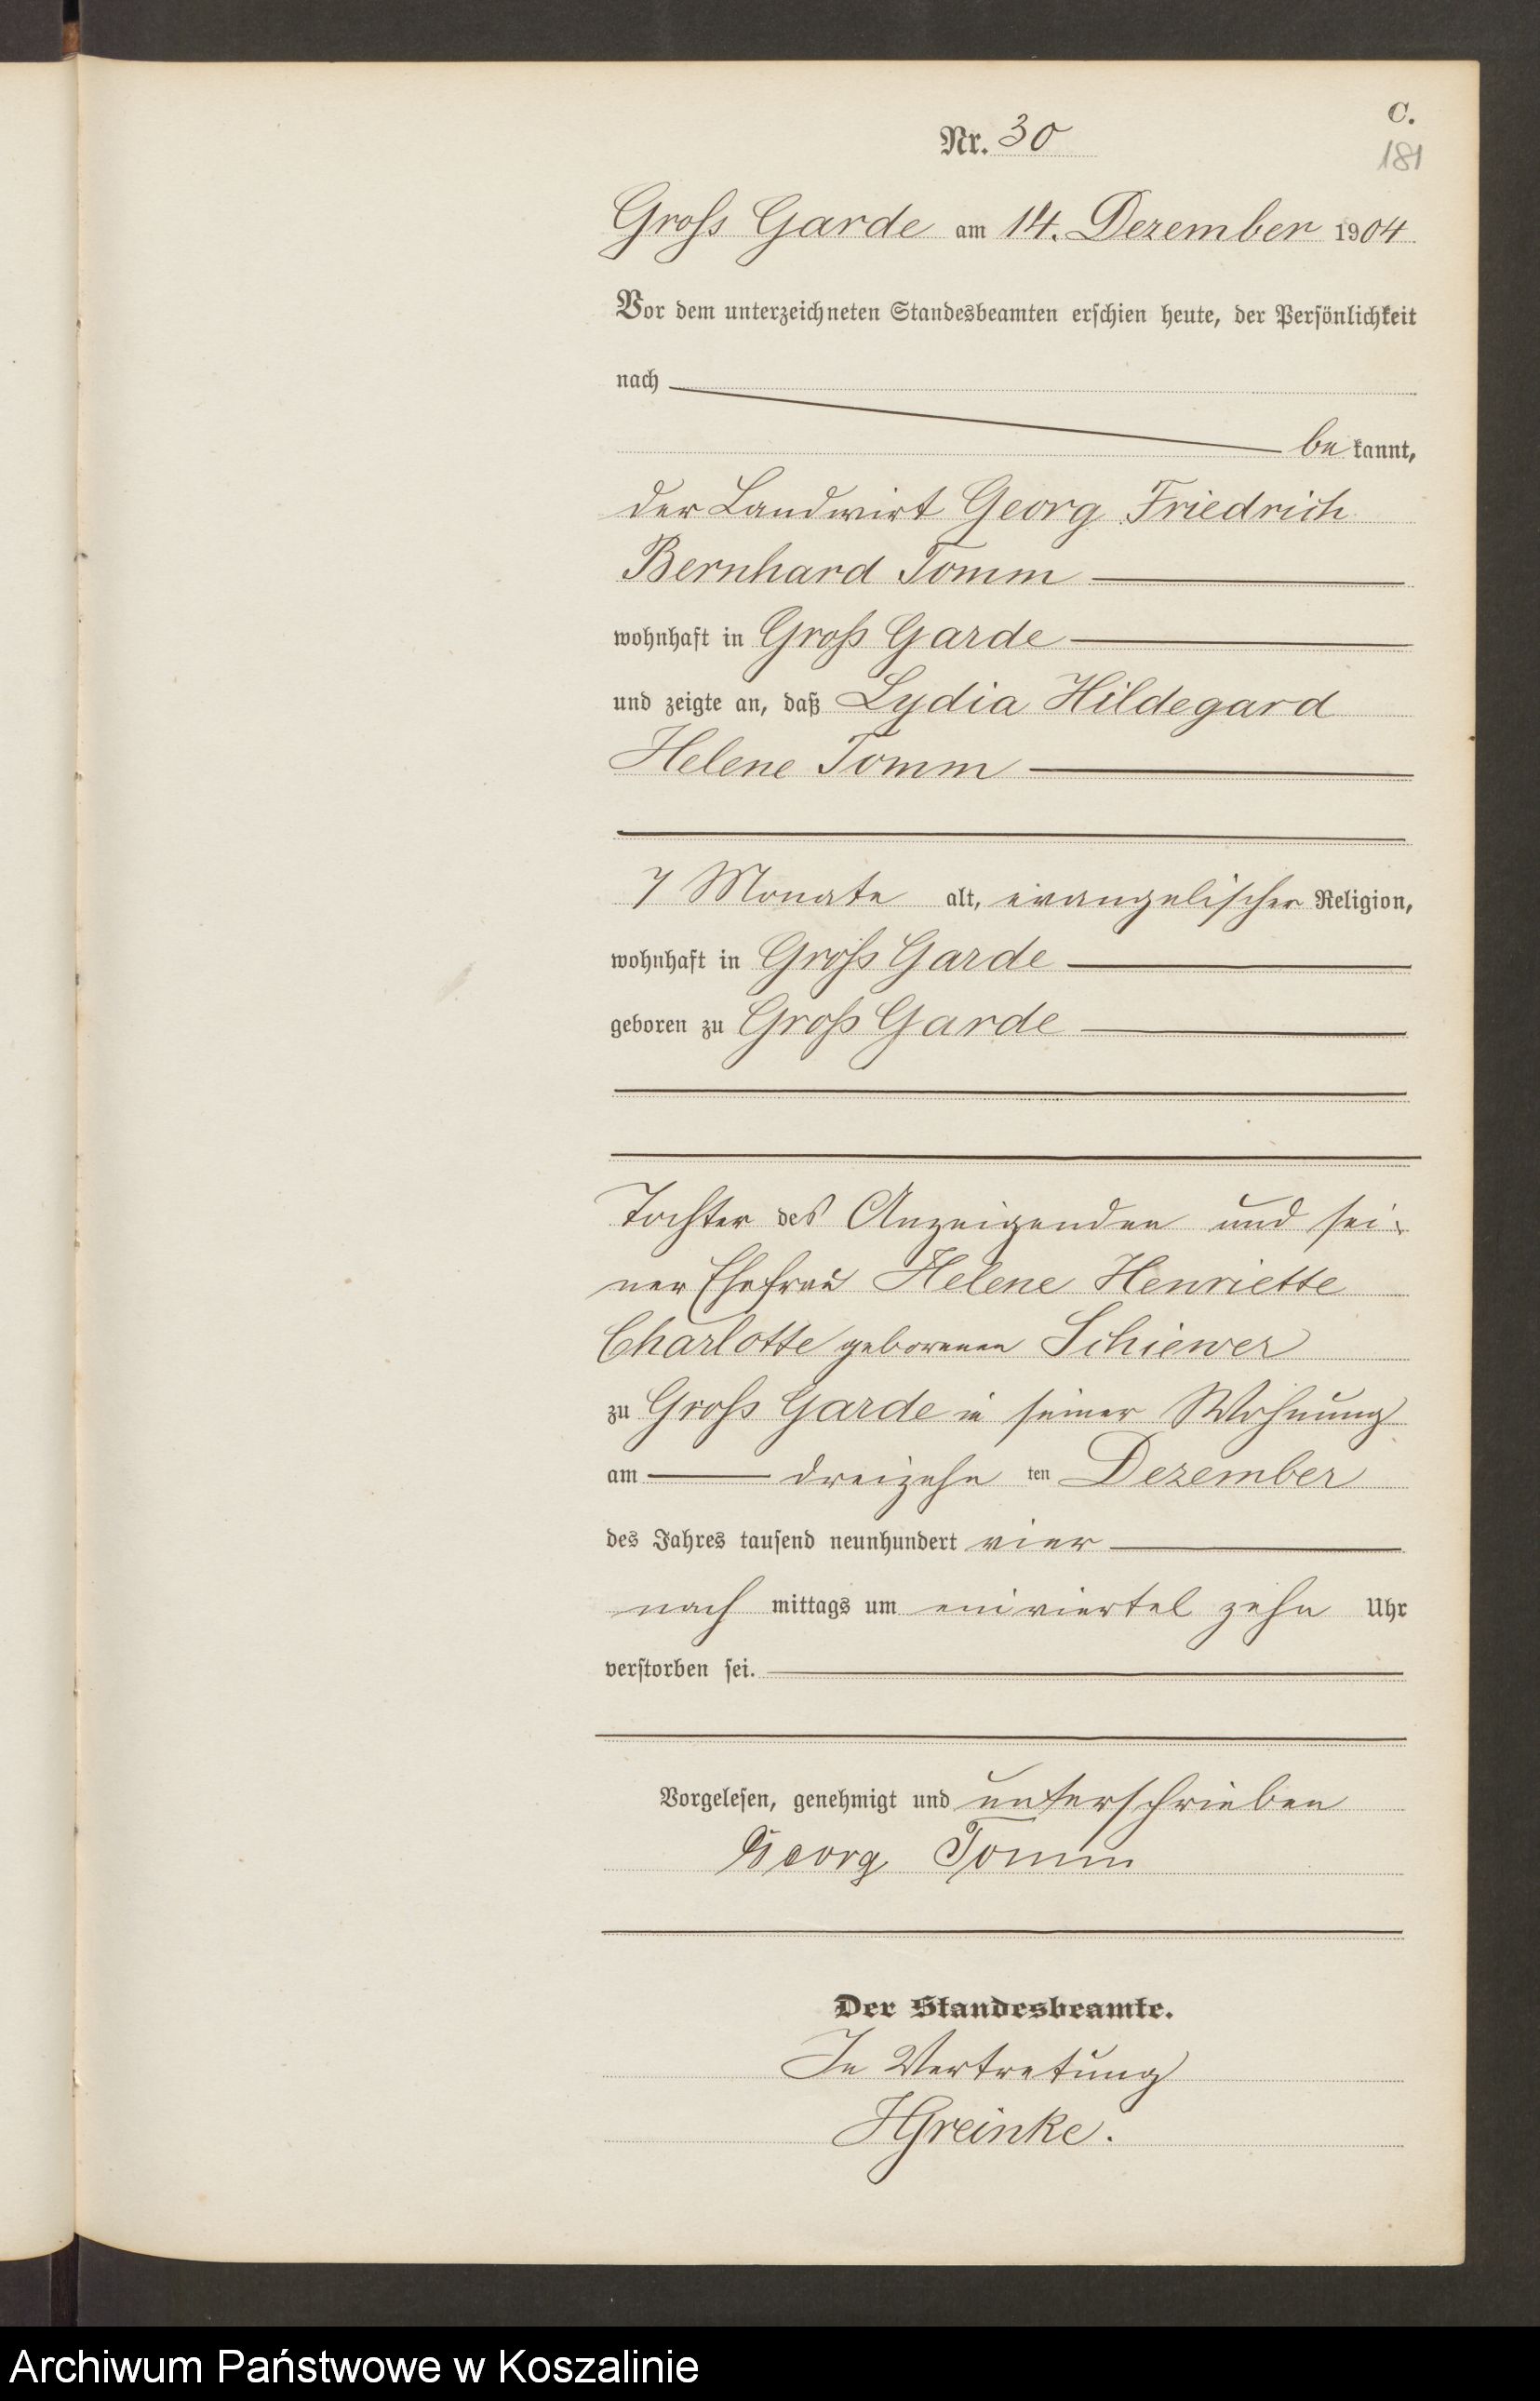 C.
Nr. 30
181
Gross Garde am 14. Dezember 1904
Vor dem unterzeichneten Standesbeamten erschien heute, der Persönlichkeit
nach
be kannt,
der Landwirt Georg Friedrich
Bernhard Tomm
wohnhaft in Groß Garde
und zeigte an, daß Lydia Hildegard
Helene Tomm
7 Monate alt, evangelischer Religion,
wohnhaft in Gross Garde
geboren zu Groß Garde
Tochter des Anzeigenden und sei-
ner Ehefrau Helene Henriette
Charlotte geborenen Schiewer
zu Gross Garde in seiner Wohnung
am dreizehn ten Dezember
des Jahres tausend neunhundert vier
nach mittags um einviertel zehn Uhr
verstorben sei.
Vorgelesen, genehmigt und unterschrieben
Georg Tomm
Der Standesbeamte.
In Vertretung
HGreinke.
Archiwum Państwowe w Koszalinie